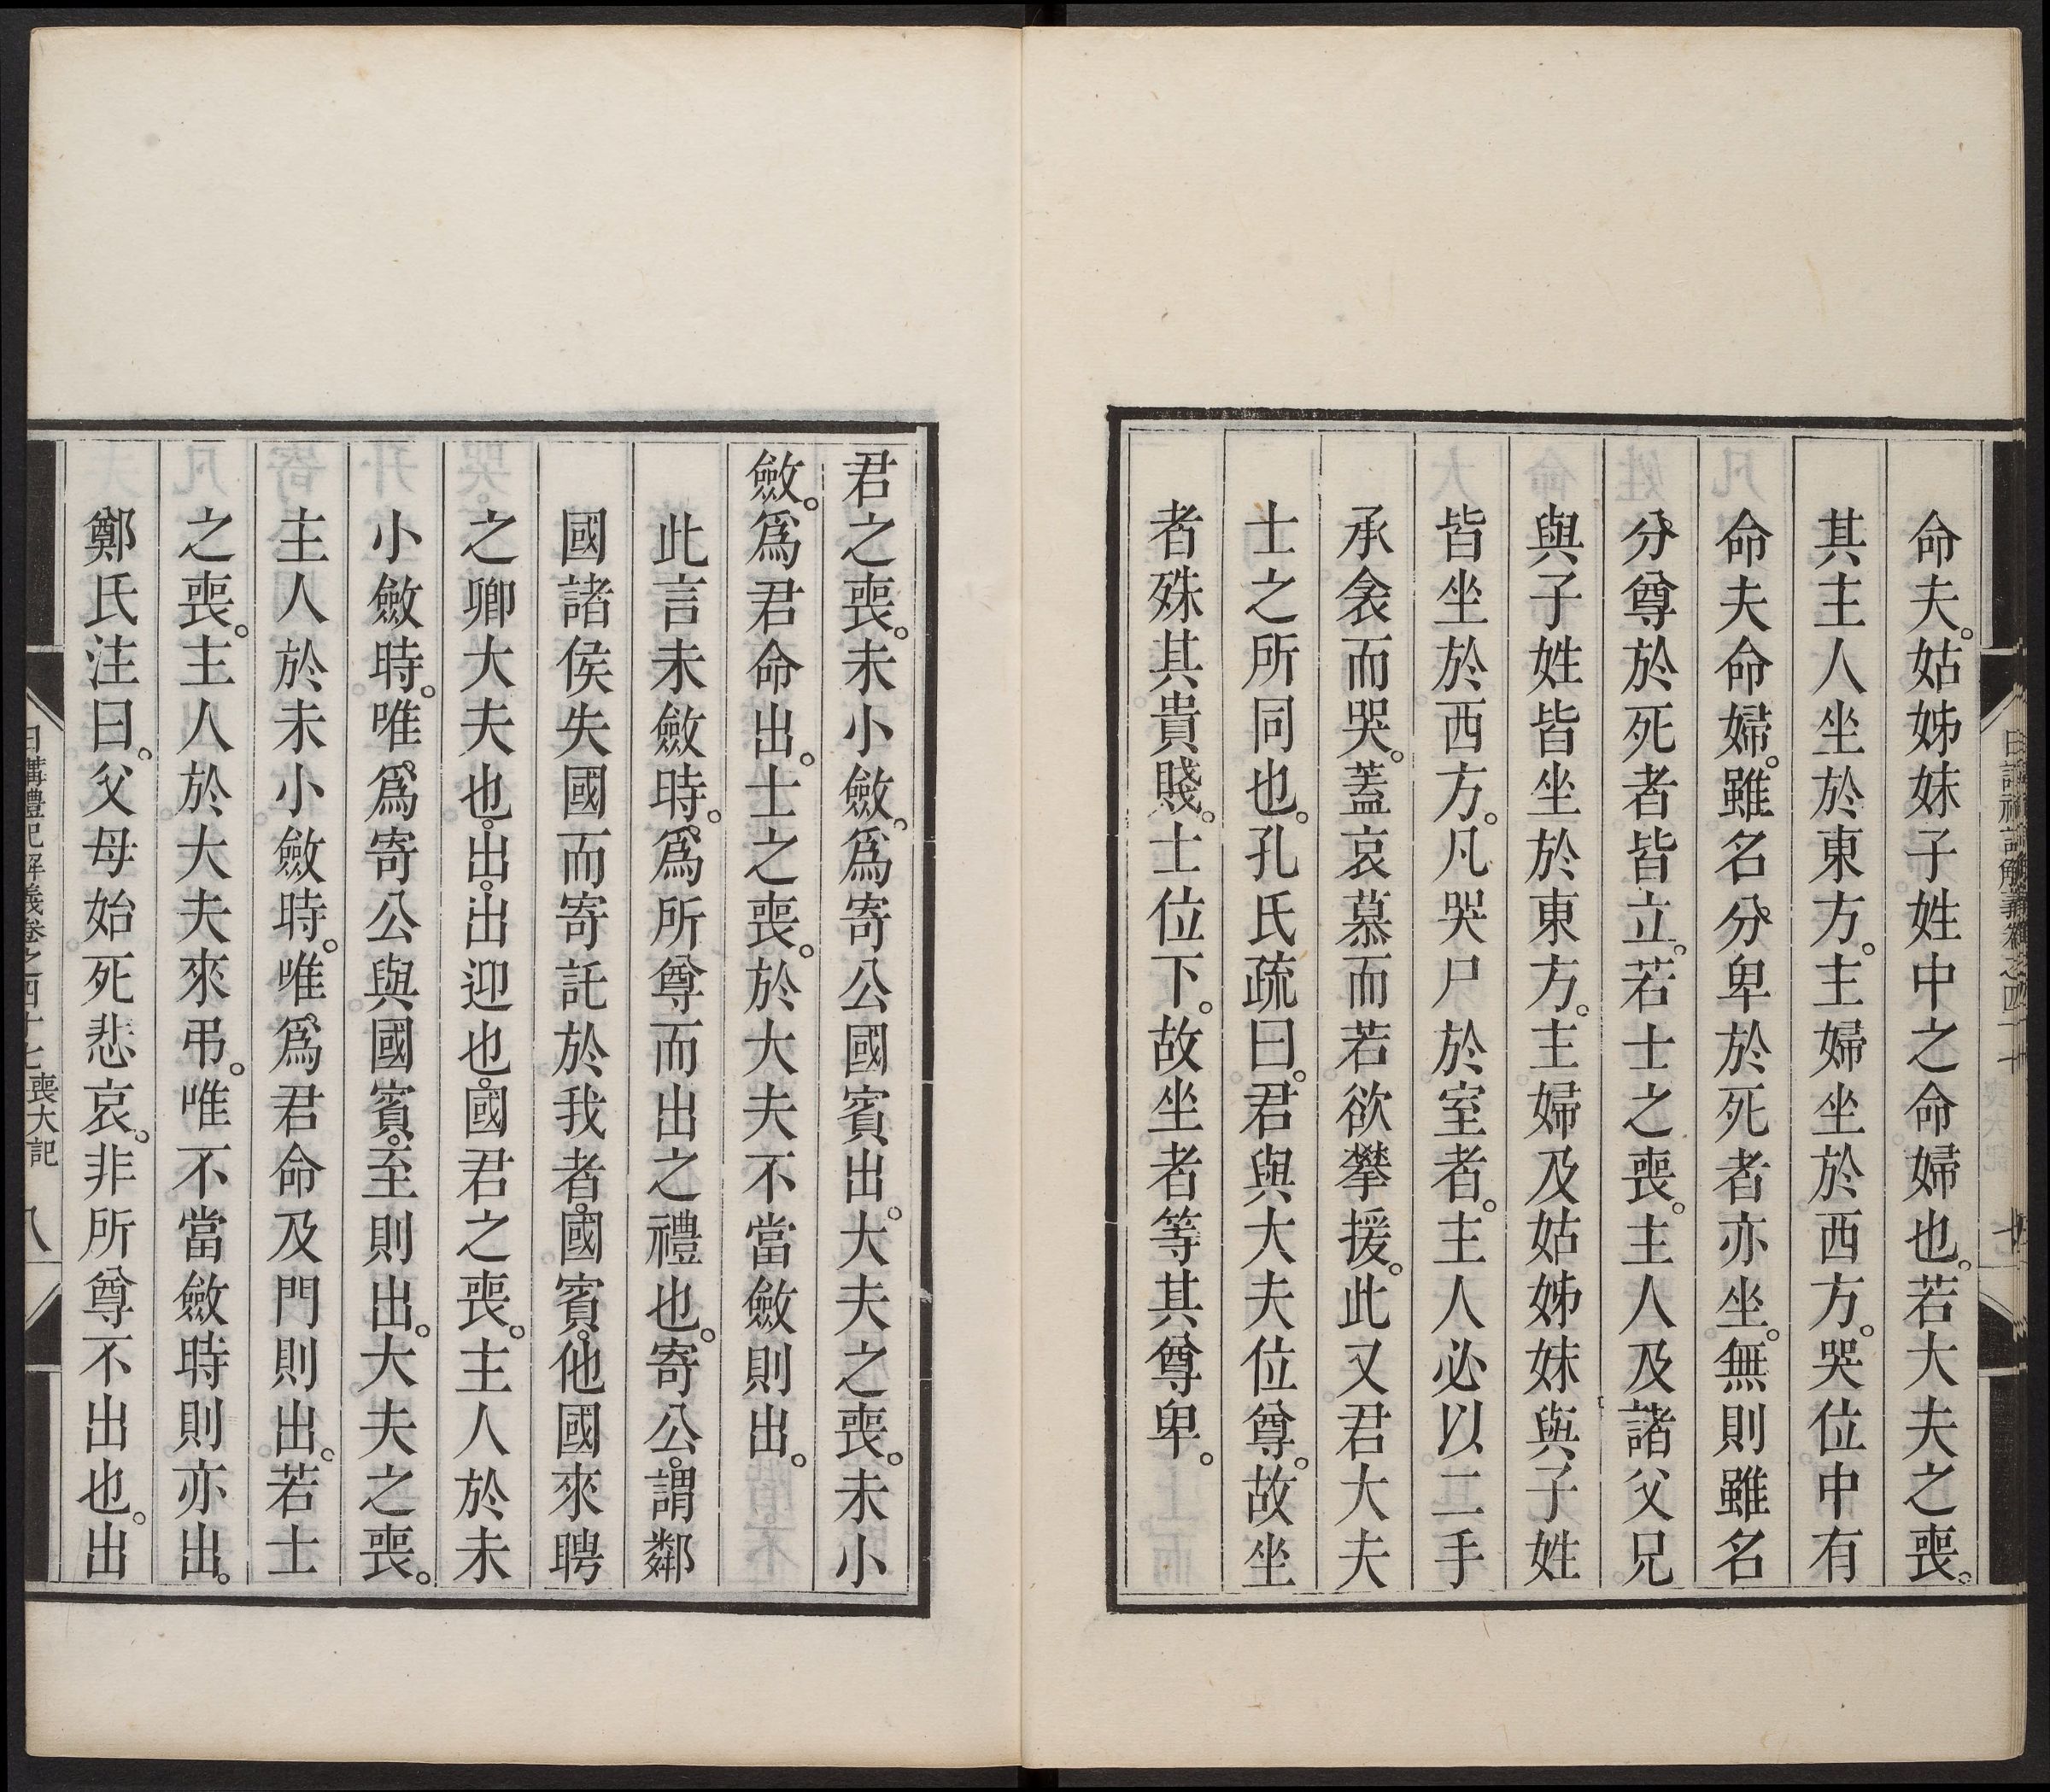 命夫。姑姊妹子姓中之命婦也。若大夫之喪。
其主人坐於東方。主婦坐於西方。哭位中有
命夫命婦。雖名分卑於死者亦坐。無則雖名
分尊於死者皆立。若士之喪。主人及諸父兄
與子姓皆坐於東方。主婦及姑姊妹與子姓
皆坐於西方。凡哭尸於室者。主人必以二手
承衾而哭。蓋哀慕而若欲攀援。此又君大夫
士之所同也。孔氏疏曰。君與大夫位尊。故坐
者殊其貴賤。士位下。故坐者等其尊卑。
君之喪。未小斂。爲寄公國賓出。大夫之喪。未小
斂。爲君命出。士之喪。於大夫不當斂則出。
此言未斂時。爲所尊而出之禮也。寄公。謂鄰
國諸侯失國而寄託於我者。國賓。他國來聘
之卿大夫也。出。出迎也。國君之喪。主人於未
小斂時。唯爲寄公與國賓至則出。大夫之喪。
主人於未小斂時。唯爲君命及門則出。若士
之喪。主人於大夫來弔。唯不當斂時則亦出。
鄭氏注曰。父母始死悲哀。非所尊不出也。出
日講禮記解義卷之四十七 喪大記 八